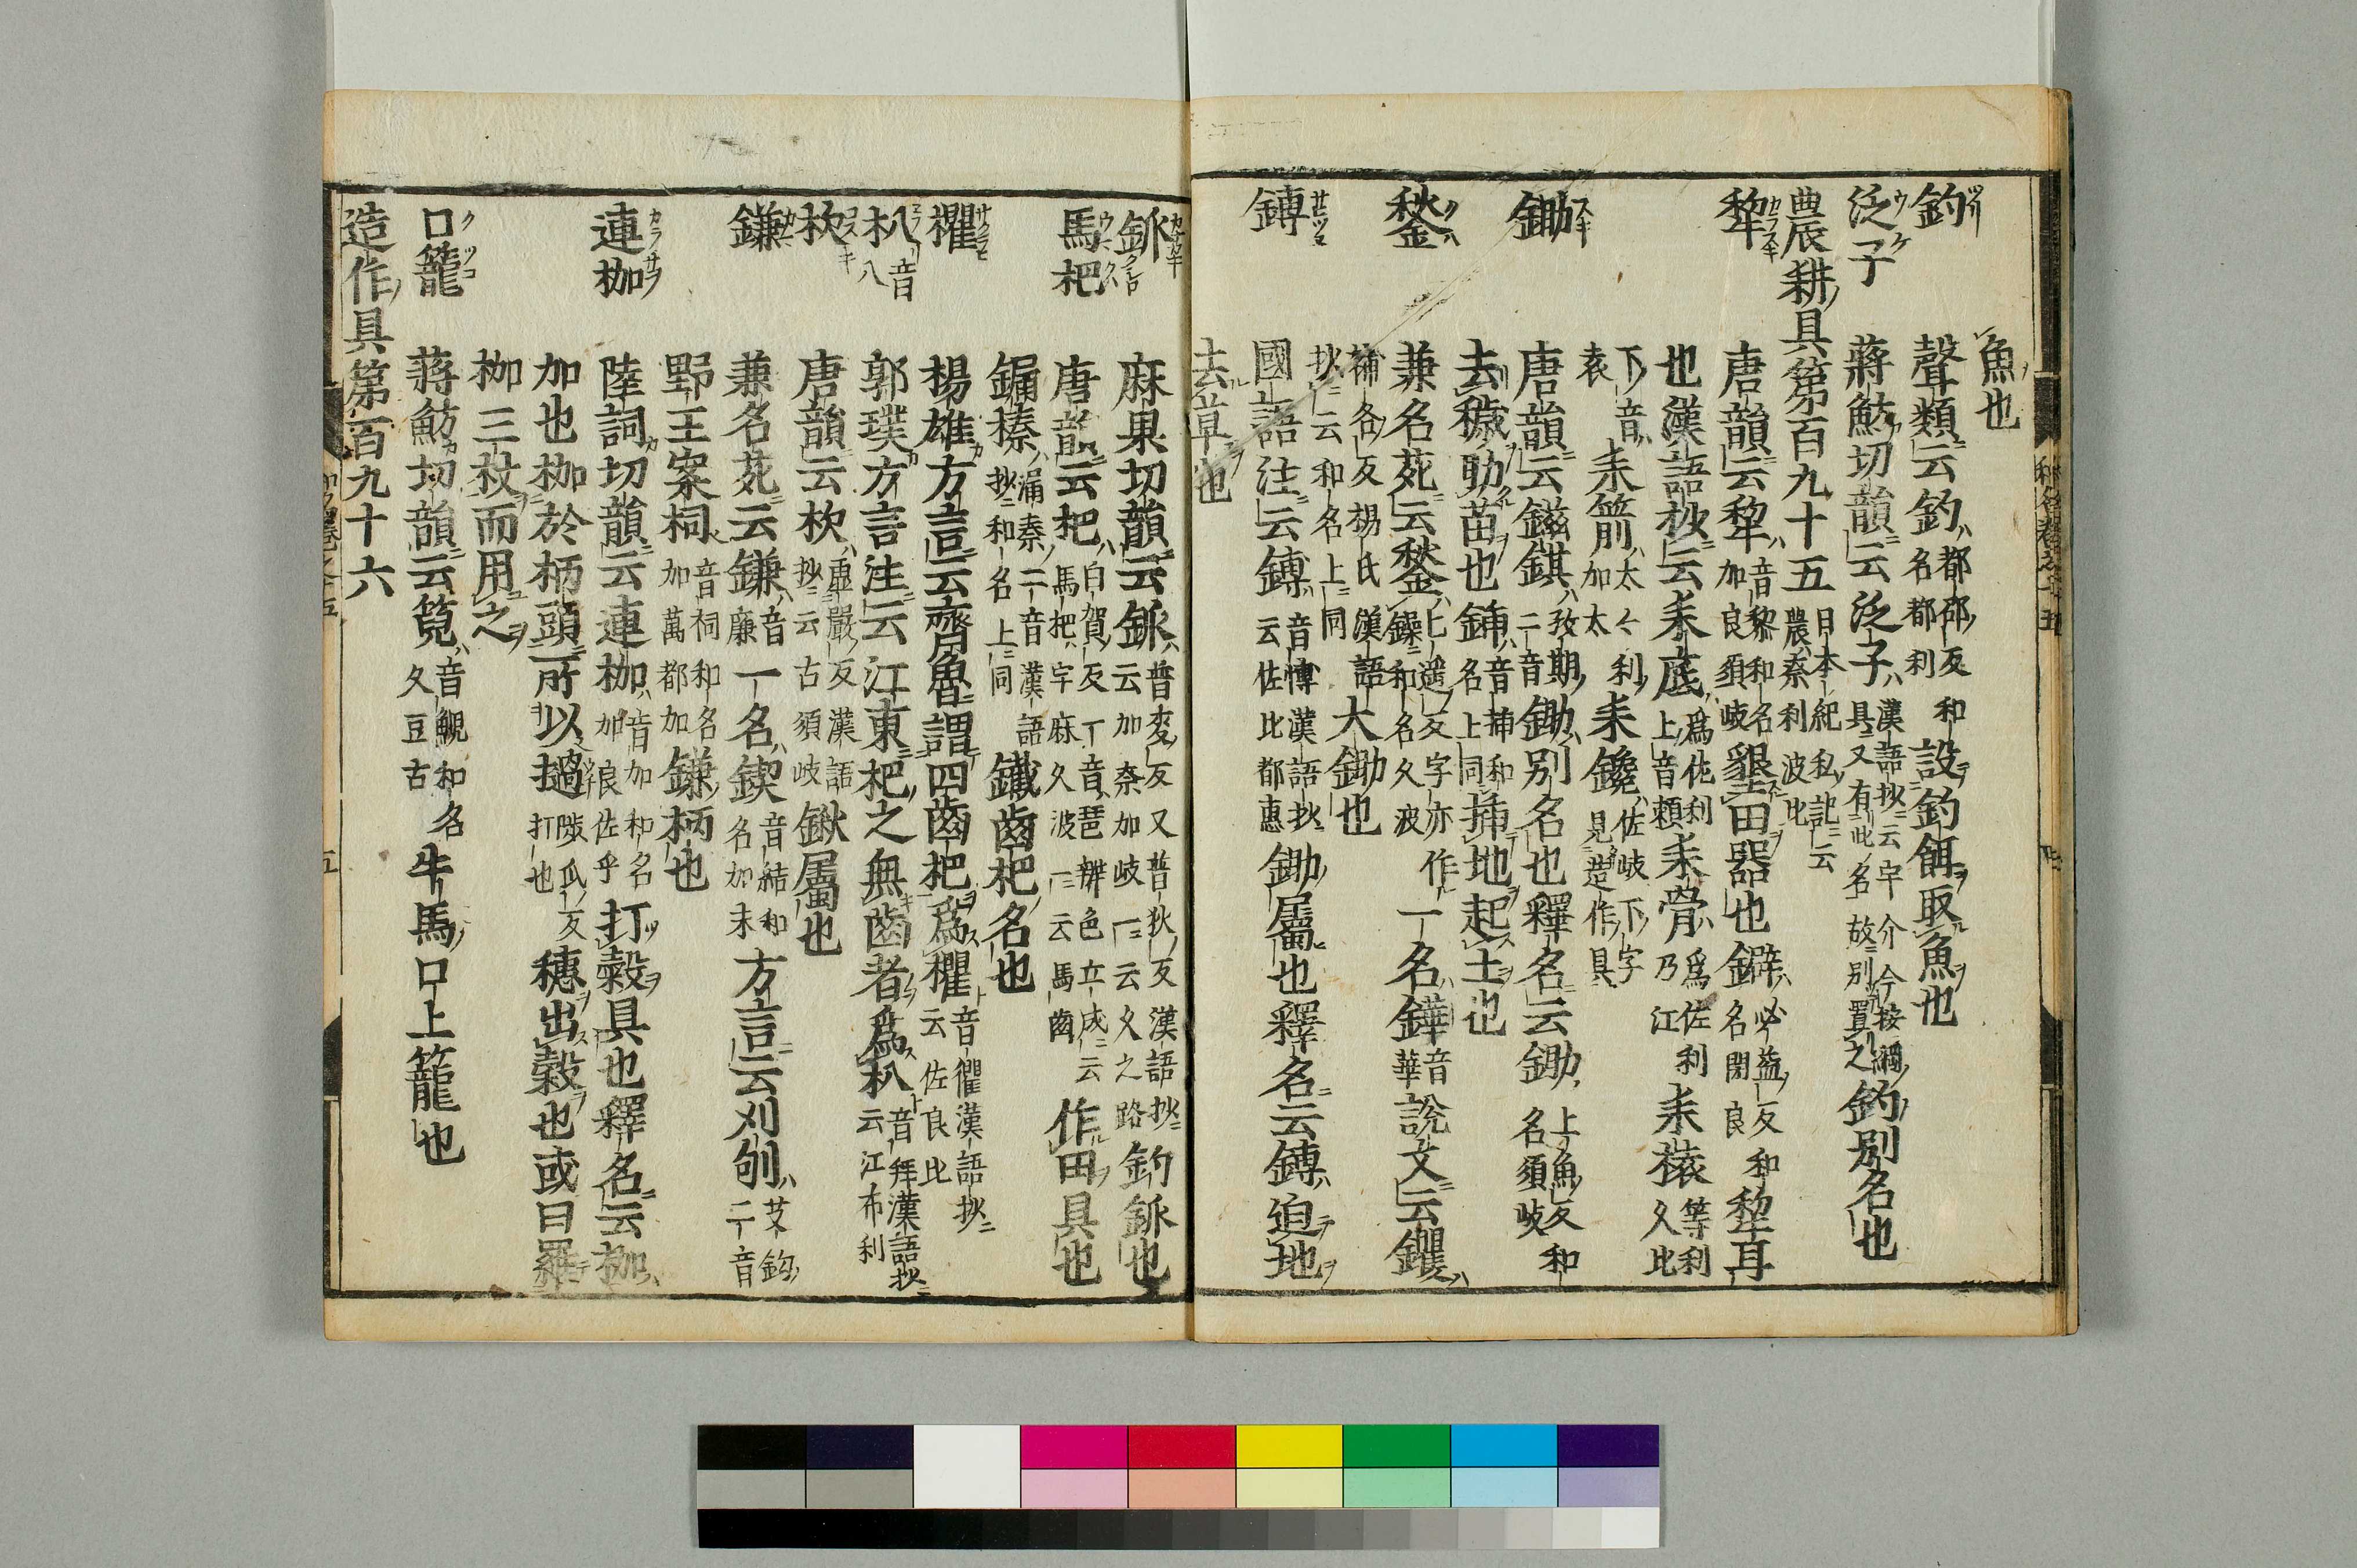 魚也
釣 聲類云釣都邵反和名都利設釣餌取魚也
泛子 蔣魴切韻云泛子漢語抄云宇介今按網具又有此名故別置之釣別名也
農耕具第百九十五 日本紀私記云農秦利波比
犂 唐韻云犂音黎和名加良須岐墾田器也鐴必益反和名閇良犂耳
也漢語抄云耒底爲佐利上音頼耒骨爲佐利乃江耒轅等利久比
下音袁耒箭太々利加太耒鑱佐岐下字見造作具
鋤 唐韻云鎡錤孜期二音鋤別名也釋名云鋤上魚反和名須岐
去穢助苗也鍤音插和名上同插地起土也
鍫 兼名苑云鍫七遥反字亦作鐰和名久波一名鏵音華說文云钁
補各反楊氏漢語抄云和名上同大鋤也
鎛 國語注云鎛音博漢語抄云佐比都惠鋤屬也釋名云鎛迫地
去草也
鎃 麻果切韻云鎃普麦反又普狄反漢語抄云加奈加岐一云久之路鈞鎃也
馬杷 唐韻云杷白賀反一音琶辨色立成云馬杷宇麻久波一云馬齒作田具也
鏰榛漏秦二音漢語抄和名上同鐵齒杷名也
欋 楊雄方言云齊魯謂四齒杷爲欋音衢漢語抄云佐良比
朳音八 郭璞方言注云江東杷之無齒者爲朳音拜漢語抄云江布利
杴 唐韻云杴虚嚴反漢語抄云古須岐鍬屬也
鎌 兼名苑云鎌音廉一名鍥音結和名加末方言云刈刎艾鈎二音
野王案柌音祠和名加萬都加鎌柄也
連枷 陸詞切韻云連枷音加和名加良佐乎打穀具也釋名云枷
加也枷於柄頭所以撾陟瓜反打也穗出穀也或曰羅
枷三杖而用之
口籠 蔣魴切韻云䇓音覞和名久豆古牛馬口上籠也
造作具第百九十六